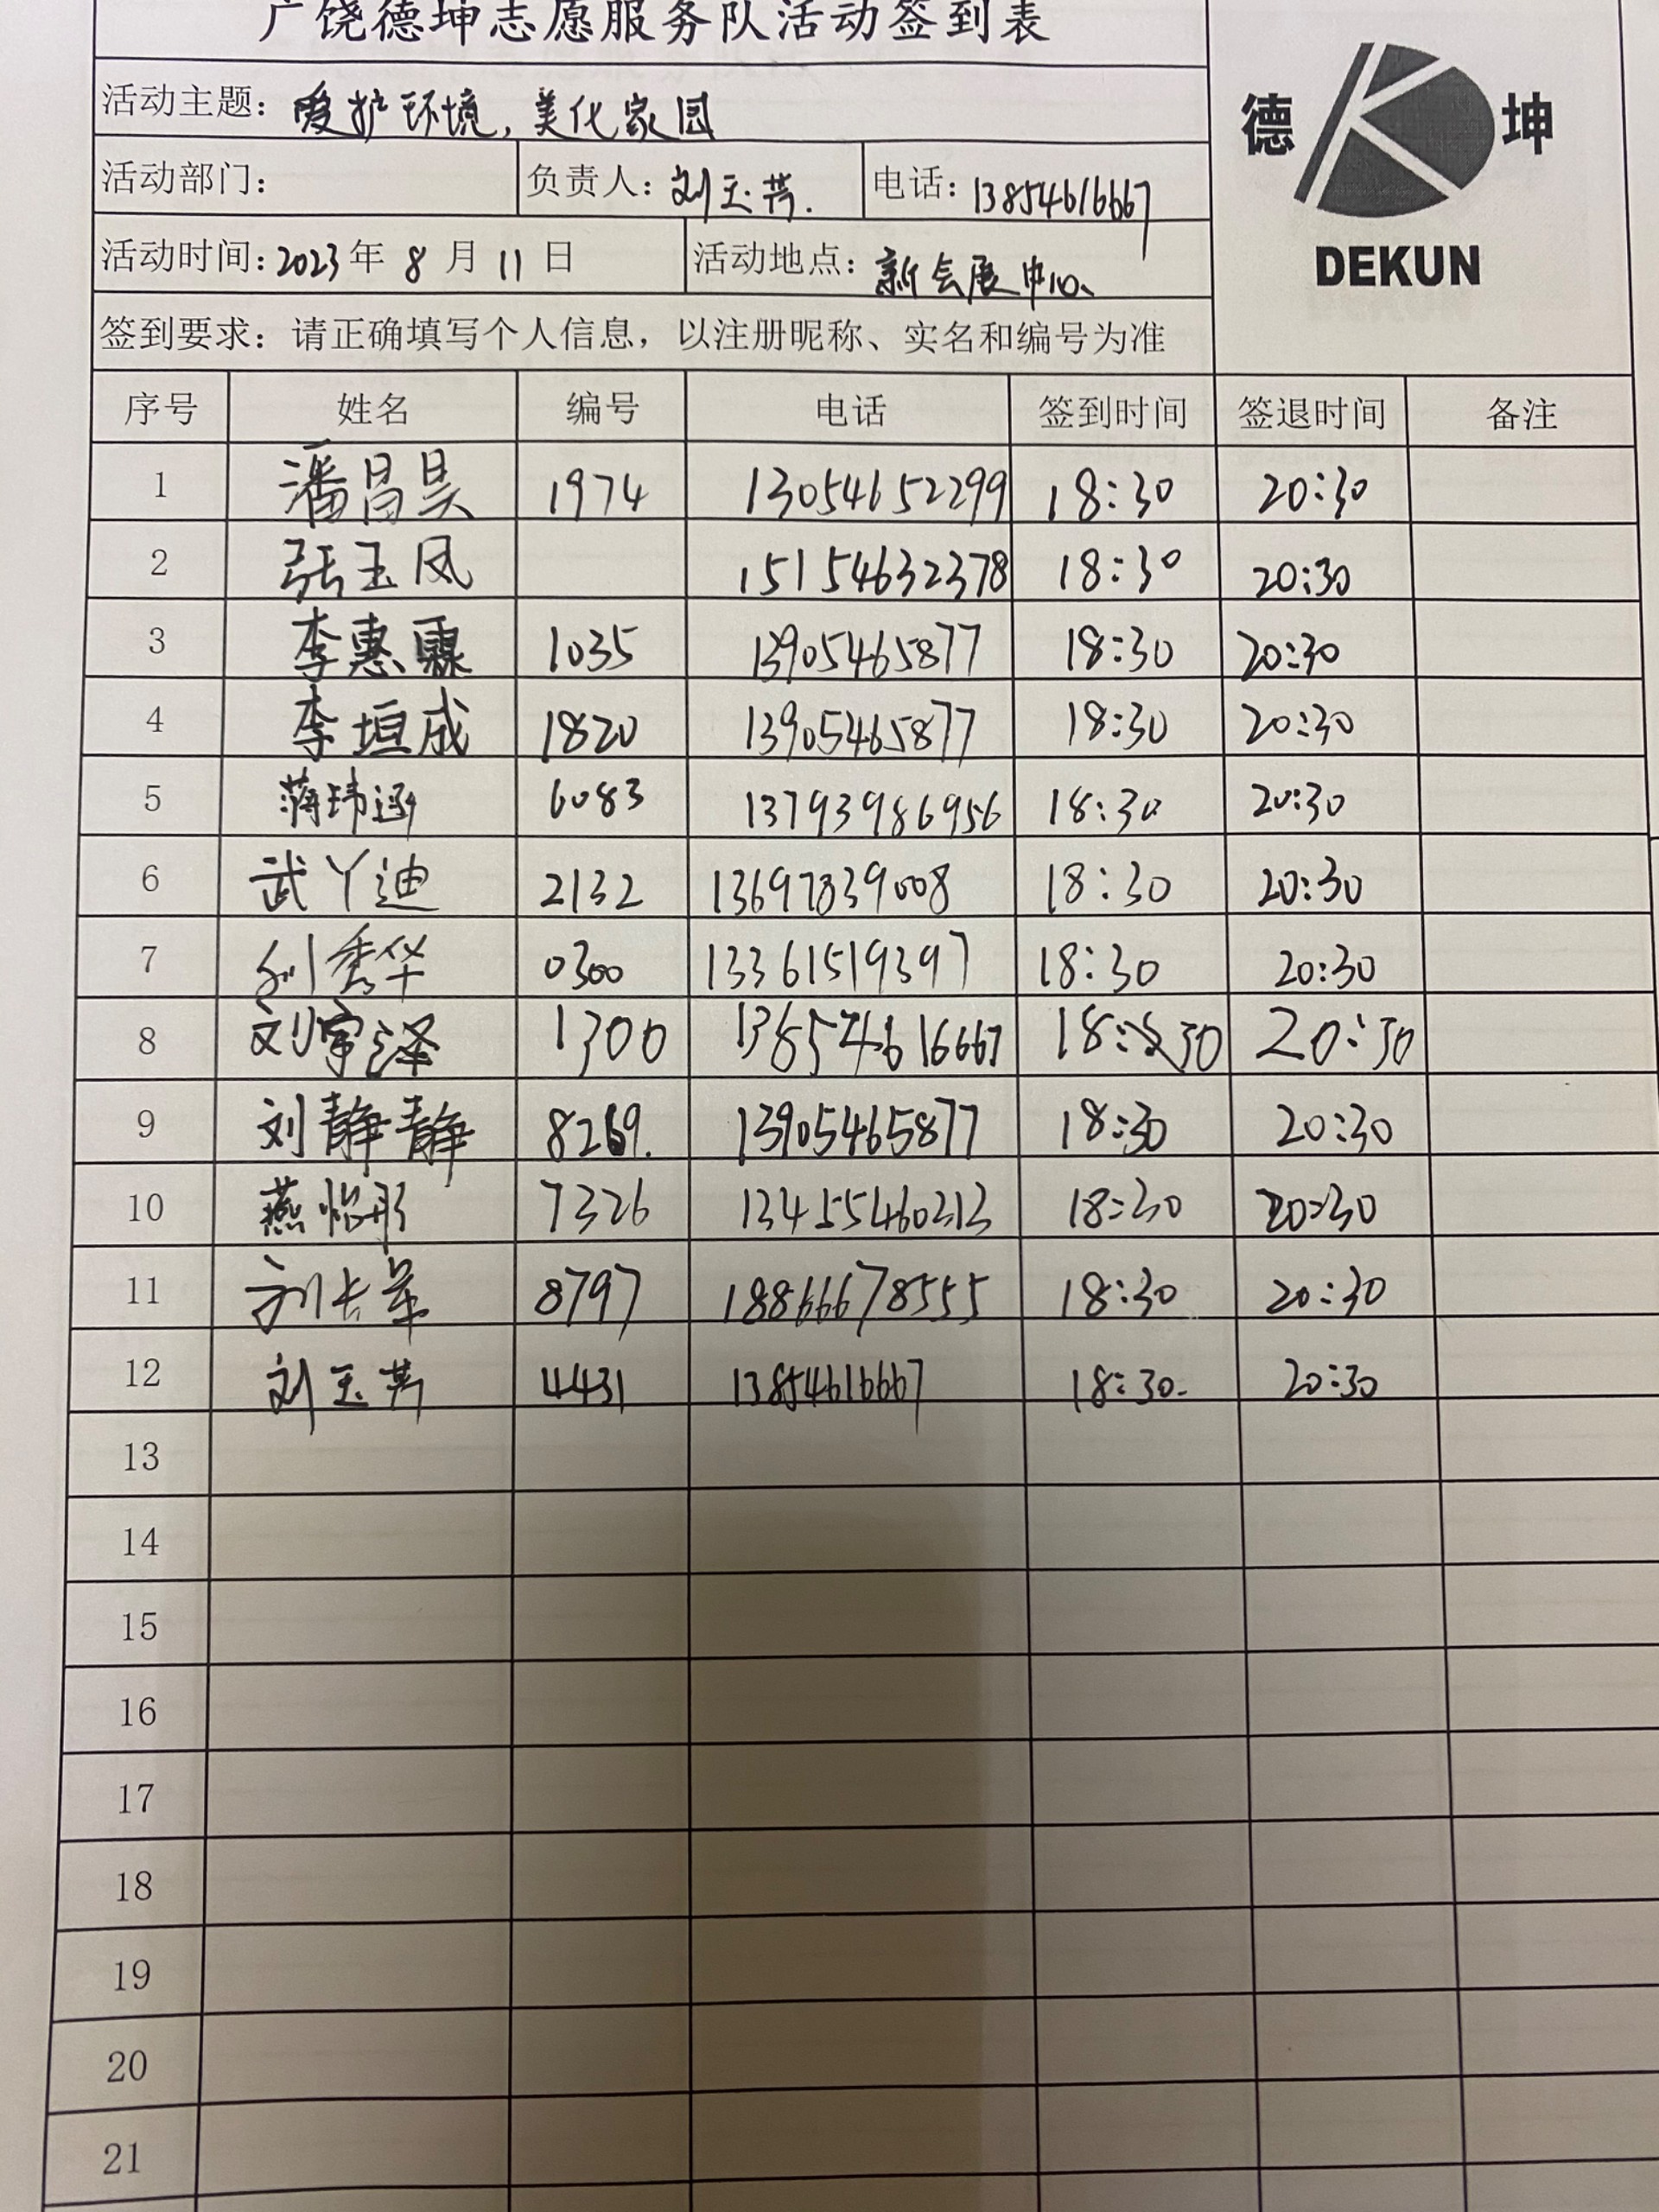 广饶德坤志愿服务队活动签到表
德 坤
DEKUN
活动主题：爱护环境，美化家园
活动部门： 负责人：刘玉芹. 电话：13854616667
活动时间：2023年 8 月 11 日 活动地点：新会展中心
签到要求：请正确填写个人信息，以注册昵称、实名和编号为准
序号 姓名 编号 电话 签到时间 签退时间 备注
1 潘昌昊 1974 13054652299 18:30 20:30
2 张玉凤 15154632378 18:30 20:30
3 李惠霖 1035 13905465877 18:30 20:30
4 李垣成 1820 13905465877 18:30 20:30
5 蒋玮涵 6083 13793986956 18:30 20:30
6 武丫迪 2132 13697839008 18:30 20:30
7 刘秀华 0300 13361519397 18:30 20:30
8 刘宇泽 1300 13854616667 18:30 20:30
9 刘静静 8269. 13905465877 18:30 20:30
10 燕怡彤 7326 13455460313 18:30 20:30
11 刘长军 8797 18866678555 18:30 20:30
12 刘玉芹 4431 13854616667 18:30. 20:30
13
14
15
16
17
18
19
20
21